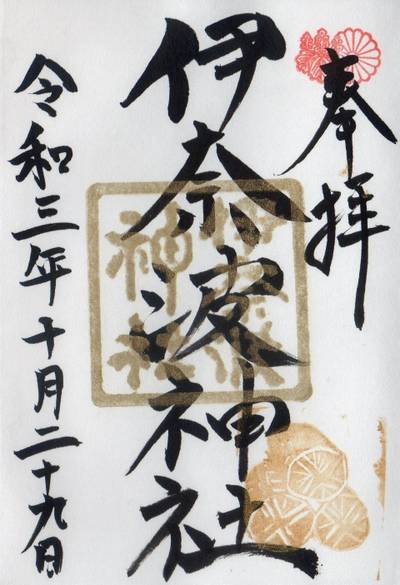 奉拝
伊奈波神社
令和三年十月二十九日